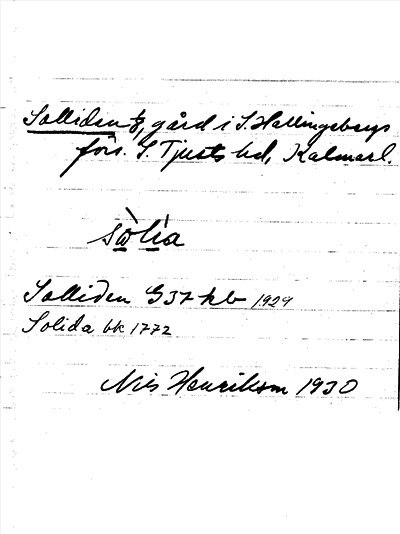 Solliden, gård i S. Hallingebergs
förs. S. Tjusts hd, Kalmarl.
sòlía
Solliden G 37 kb 1929
Solida bk 1772
Nils Henrikson 1930